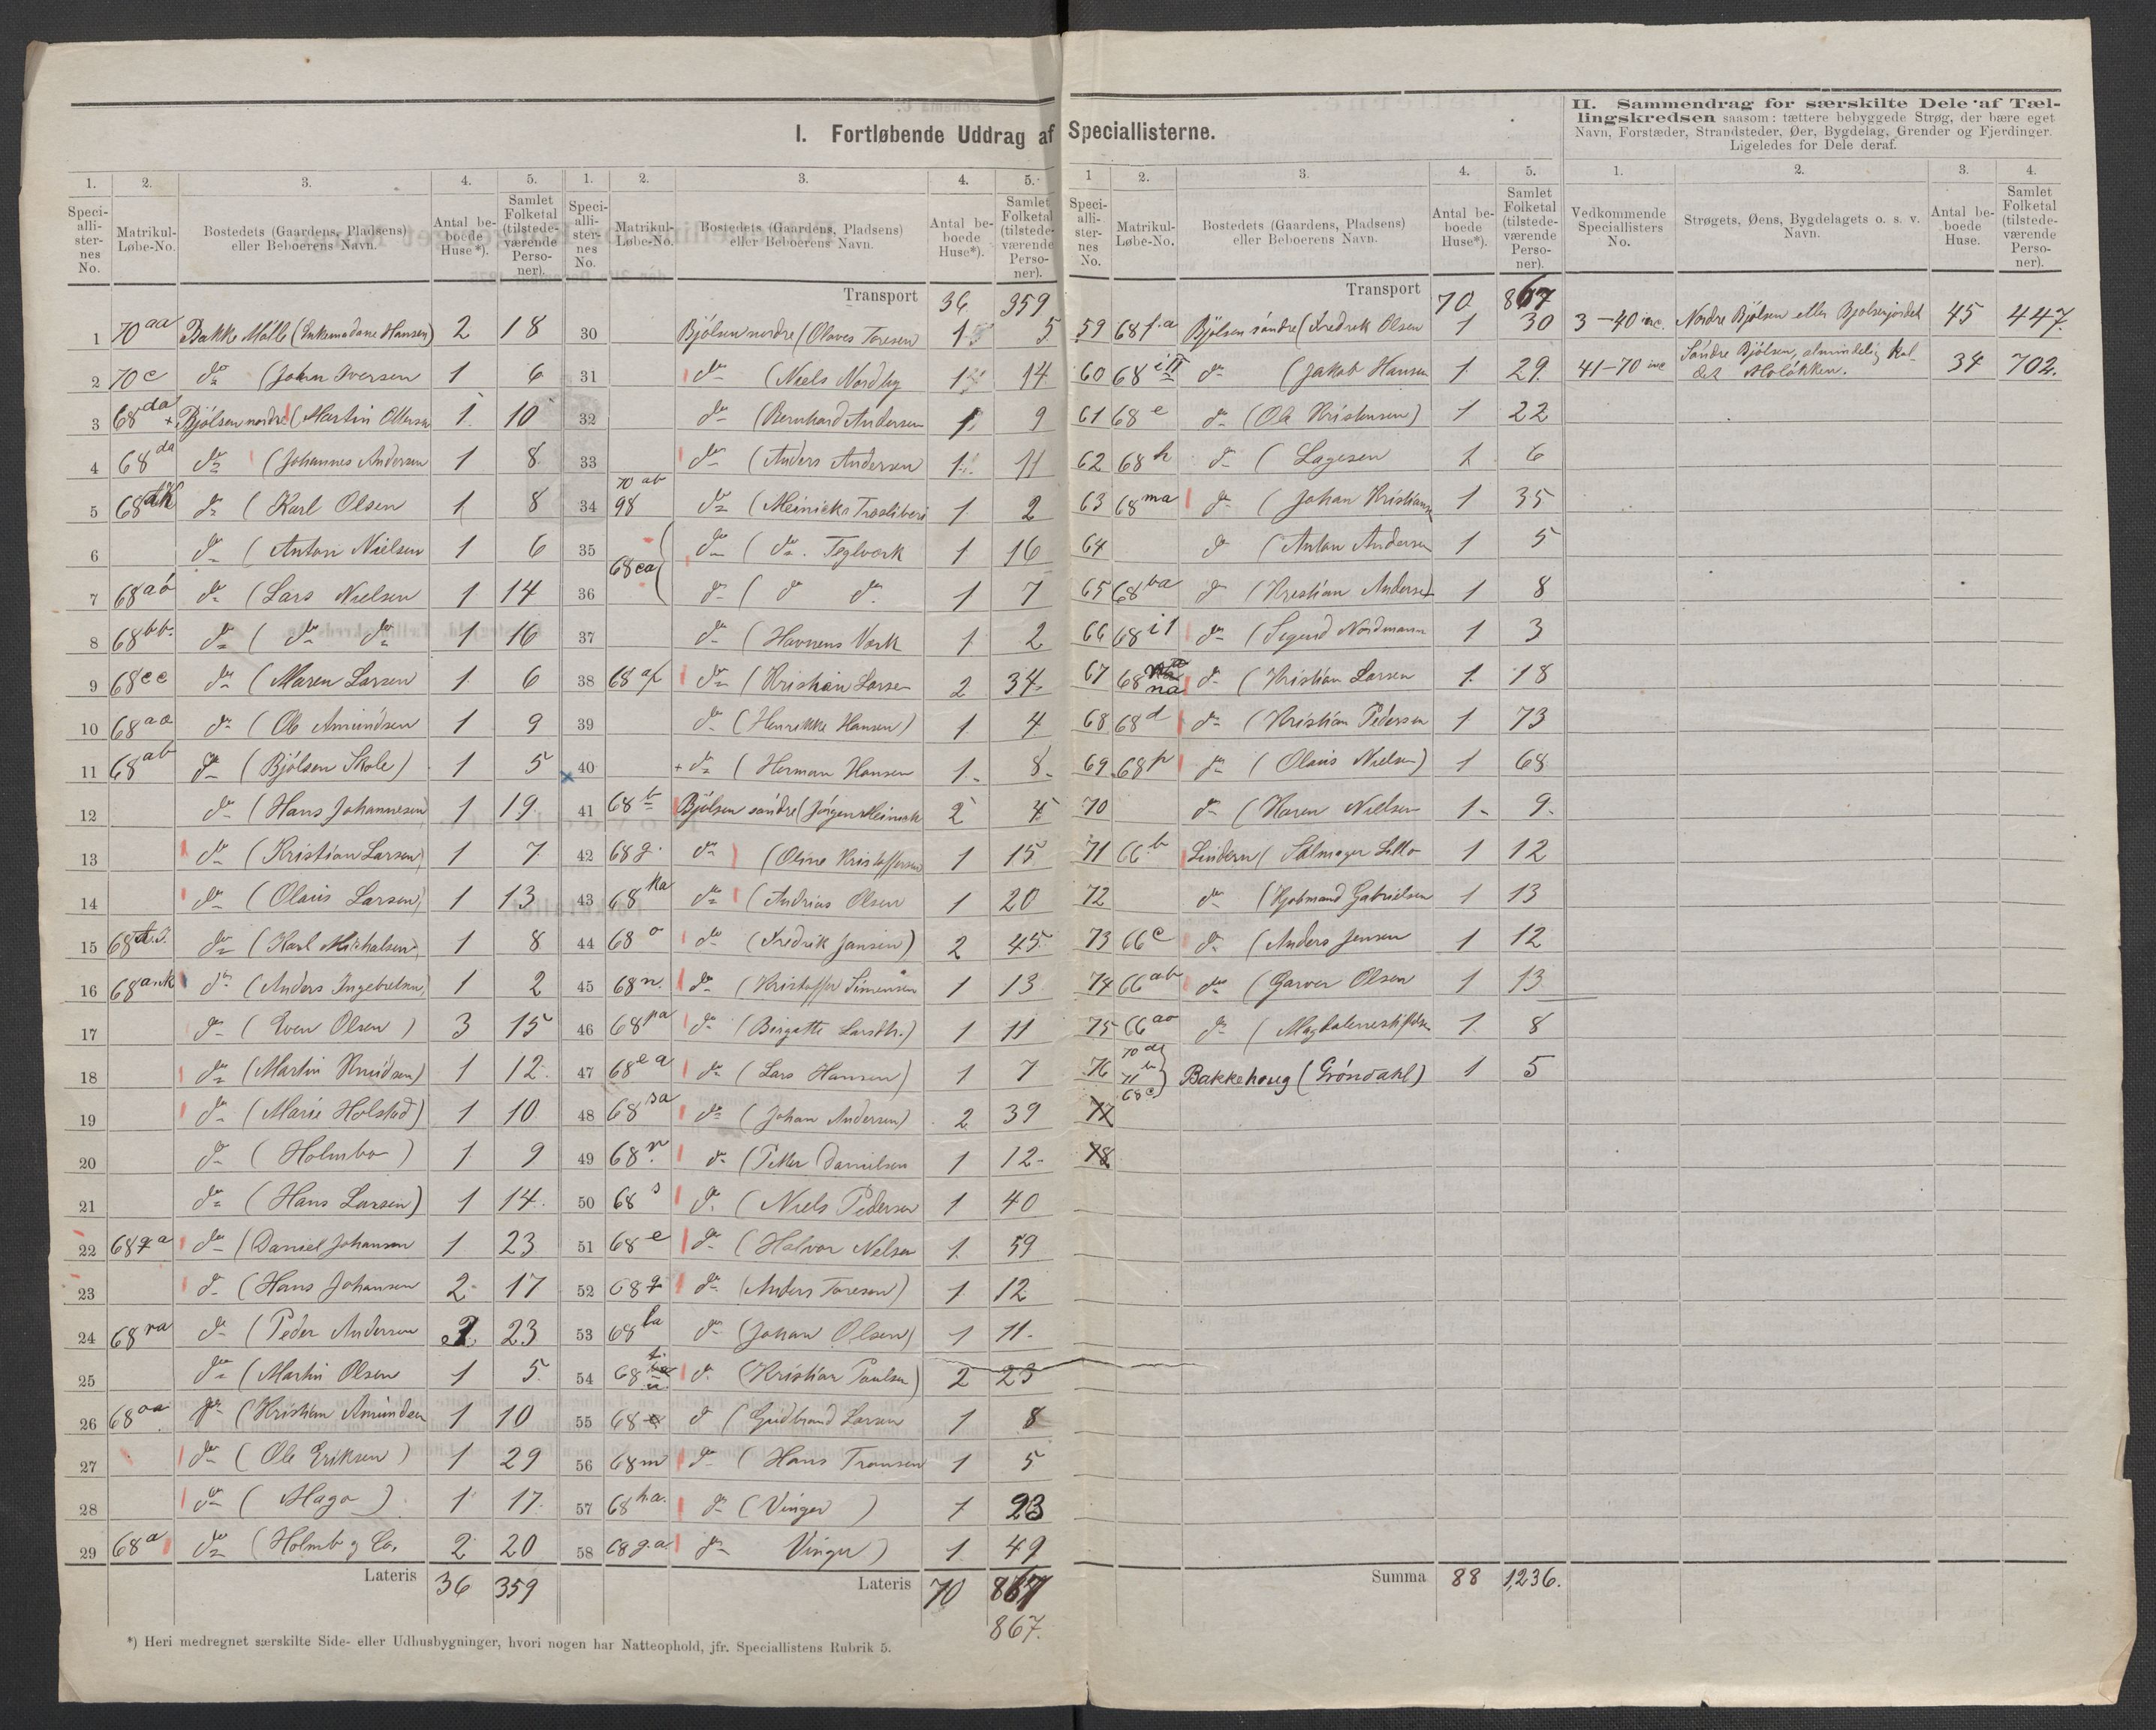 I. Fortløbende Uddrag af Speciallisterne.
1. 2. 3. 4. 5.
Speciallisternes No. Matrikul-Løbe-No. Bostedets (Gaardens, Pladsens) eller Beboerens Navn. Antal beboede Huse*). Samlet Folketal (tilstedeværende Personer).
1 70 aa Bakke Mølle (Enkemadame Hansen) 2 18
2 70 c do (Johan Iversen 1 6
3 68 da + Bjølsen nordre (Martin Ottersen 1 10
4 68 da do (Johannes Andersen 1 8
5 68 do (Karl Olsen 1 8
6 do (Anton Nielsen 1 6
7 68 ab do (Lars Nielsen 1 14
8 68 bb. do (do do 1 16
9 68 cc do (Maren Larsen 1 6
10 68 aa do (Ole Amundsen 1 9
11 68 ab do (Bjølsen Skole) 1 5
12 do (Hans Johannesen) 1 19.
13 do (Kristian Larsen) 1 7
14 do (Olaus Larsen) 1 13
15 68 do (Karl Michalsen) 1 8
16 68 ank do (Anders Ingebretsen) 1 2
17 do (Even Olsen) 3 15
18 do (Martin Knudsen) 1 12
19 do (Marie Holstad) 1 10
20 do (Holmbo) 1 9
21 do (Hans Larsen) 1 14
22 68 qa do (Daniel Johansen 1 23
23 do (Hans Johansen 2 17
24 68 ra do (Peder Andersen 2 23
25 do (Martin Olsen 1 5
26 68 oa do (Kristian Amundsen 1 10
27 do (Ole Eriksen) 1 29
28 do (Hago) 1 17
29 68 a do (Holmb og Co. 2 20
Lateris 36 359
1. 2. 3. 4. 5.
Speciallisternes No. Matrikul-Løbe-No. Bostedets (Gaardens, Pladsens) eller Beboerens Navn. Antal beboede Huse*). Samlet Folketal (tilstedeværende Personer).
Transport 36 359
30 Bjölsen nordre (Olaves Toresen 1 5
31 do (Niels Nordby 1 14
32 do (Bernhard Andersen 1 9
33 do (Anders Andersen 1 11
34 70 ab 98 do (Meinicks 1 2
35 68 ca do (do. Teglværk 1 16
36 do (do do 1 7
37 do (Havnens Værk 1 2
38 68 af do (Kristian Larsen 2 34
39 do (Henrikke Hansen) 1 4
40 + do (Herman Hansen 1 8
41 68 b Bjölsen söndre (Jörgen Meinick 2 4
42 68 g. do (Oline Kristoffersen 1 15
43 68 ka do (Andrias Olsen 1 20
44 68 o do (Fredrik Jansen) 2 45
45 68 n. do (Kristoffer Simensen 1 13
46 68 pa do (Birgitte Larsdtr.) 1 11
47 68 ea do (Lars Hansen) 1 7
48 68 sa do (Johan Andersen) 2 39
49 68 r. do (Petter Danielsen 1 12
50 68 s do (Niels Pedersen 1 40
51 68 e do (Halvor Nelsen 1 59
52 68 q do (Anders Toresen) 1 12
53 68 la do (Johan Olsen) 1 11
54 68 do (Kristian Paulsen) 2 23
55 68 do (Gudbrand Larsen 1 8
56 68 m do (Hans Transen 1 5
57 68 ha. do (Vinger) 1 23
58 68 g.a do Vinger) 1 49
Lateris 70 867
867.
*) Heri medregnet særskilte Side- eller Udhusbygninger, hvori nogen har Natteophold, jfr. Speciallistens Rubrik 5.
1 2. 3. 4. 5.
Speciallisternes No. Matrikul-Løbe-No. Bostedets (Gaardens, Pladsens) eller Beboerens Navn. Antal beboede Huse*). Samlet Folketal (tilstedeværende Personer).
Transport 70 867
59 68 f.a Bjölsen söndre (Fredrik Olsen 1 30
60 68 i II do (Jakob Hansen 1 29
61 68 e do (Ole Kristensen) 1 22
62 68 h do (Lagesen 1 6
63 68 ma do (Johan Kristiansen 1 35
64 do (Anton Andersen 1 5
65 68 ba do (Kristian Andersen 1 8
66 68 i 1 do (Sigurd Nordmann 1 3
67 68 na do (Kristian Larsen 1 18
68 68 d do (Kristian Pedersen 1 73
69 68 p do (Olaus Nielsen) 1 68
70 do (Karen Nielsen 1 9
71 66 b Lindern (Salmager Lillo 1 12
72 do (Kjøbmand Gabrielsen 1 13
73 66 c do (Anders Jensen 1 12
74 66 ab do (Garver Olsen 1 13
75 66 aa do (Magdalenestiftelsen 1 8
76 70 d 71 b 68 c Bakkehaug (Gröndahl) 1 5
77
78
Summa 88 1,236.
II. Sammendrag for særskilte Dele af Tællingskredsen saasom: tættere bebyggede Strøg, der bære eget Navn, Forstæder, Strandsteder, Øer, Bygdelag, Grender og Fjerdinger. Ligeledes for Dele deraf.
1. 2. 3. 4.
Vedkommende Speciallisters No. Strøgets, Øens, Bygdelagets o. s. v. Navn. Antal beboede Huse. Samlet Folketal (tilstedeværende Personer).
3-40 inc. Nordre Bjölsen eller Bjølsenjordet 45 447.
41-70 inc Söndre Bjölsen, almindelig kaldet Moløkken. 34 702.